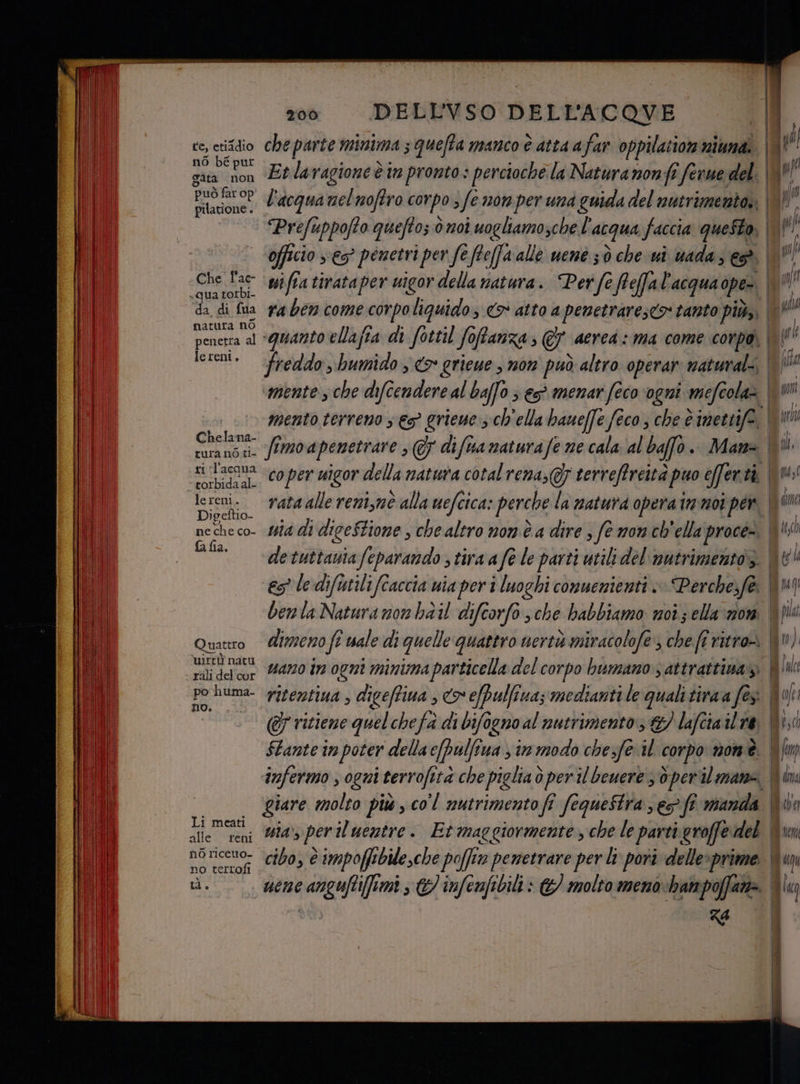 200 DELL'VSO DELL'ACQVE
te, etiãdio
nõ bẽ pur
gata non
può far op
pilatione.
che parte minima; questa manco è atta a far oppilation niuna.
Et la ragione è in pronto: percioche la Natura non si serue del
l'acqua nel nostro corpo, se non per una guida del nutrimento.
Presupposto questo; ò noi uogliamo, che l'acqua faccia questo
officio, es penetri per se stessa alle uene; ò che ui uada, es
Che l'ac-
qua torbi-
da di sua
natura nõ
penetra al
le reni.
ui sia tirata per uigor della natura. Per se stessa l'acqua ope-
ra ben come corpo liquido, & atto a penetrare, & tanto più,
quanto ella sia di sottil sostanza, & aerea: ma come corpo
freddo, humido, & grieue, non può altro operar natural-
mente, che discendere al basso, es menar seco ogni mescola-
mento terreno, es grieue, ch'ella hauesse seco, che è inettis-
Che la na-
tura nõ ti-
ri l'acqua
torbida al-
le reni.
simo a penetrare, & di sua natura se ne cala al basso. Man-
co per uigor della natura cotal rena, & terrestreità puo esser ti
rata alle reni, nè alla uescica: perche la natura opera in noi per
Digestio-
ne che co-
sa sia.
uia di digestione, che altro non è a dire, se non ch'ella proce-
de tuttauia separando, tira a sè le parti utili del nutrimento;
es le disutili scaccia uia per i luoghi conuenienti. Perche, se
ben la Natura non hà il discorso, che habbiamo noi; ella non
Quattro
uirtù natu
rali del cor
po huma-
no.
dimeno si uale di quelle quattro uertù miracolose, che si ritro-
uano in ogni minima particella del corpo humano, attrattiua,
ritentiua, digestiua, & espulsiua; medianti le quali tira a se,
& ritiene quel che fà di bisogno al nutrimento, & lascia il re
stante in poter della espulsiua, in modo che, se il corpo non è
infermo, ogni terrosità che piglia ò per il beuere, ò per il man-
giare molto più, co'l nutrimento si sequestra, es si manda
Li meati
alle reni
nõ riceuo-
no terrosi
tà.
uia, per il uentre. Et maggiormente, che le parti grosse del
cibo, è impossibile, che possin penetrare per li pori delle prime
uene angustissimi, & insensibili: & molto meno han possan-
za